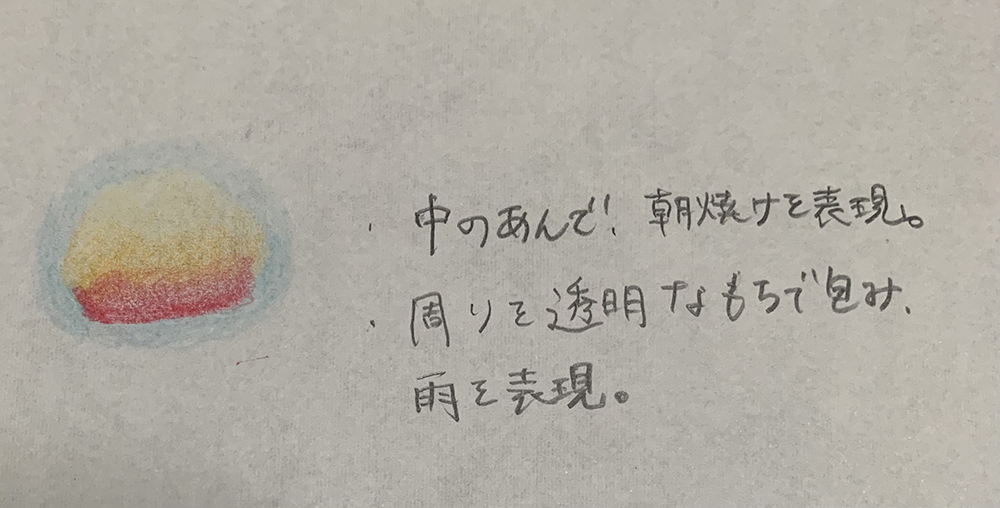 ・中のあんで! 朝焼けを表現。
・周りを透明なもちで包み、
雨を表現。